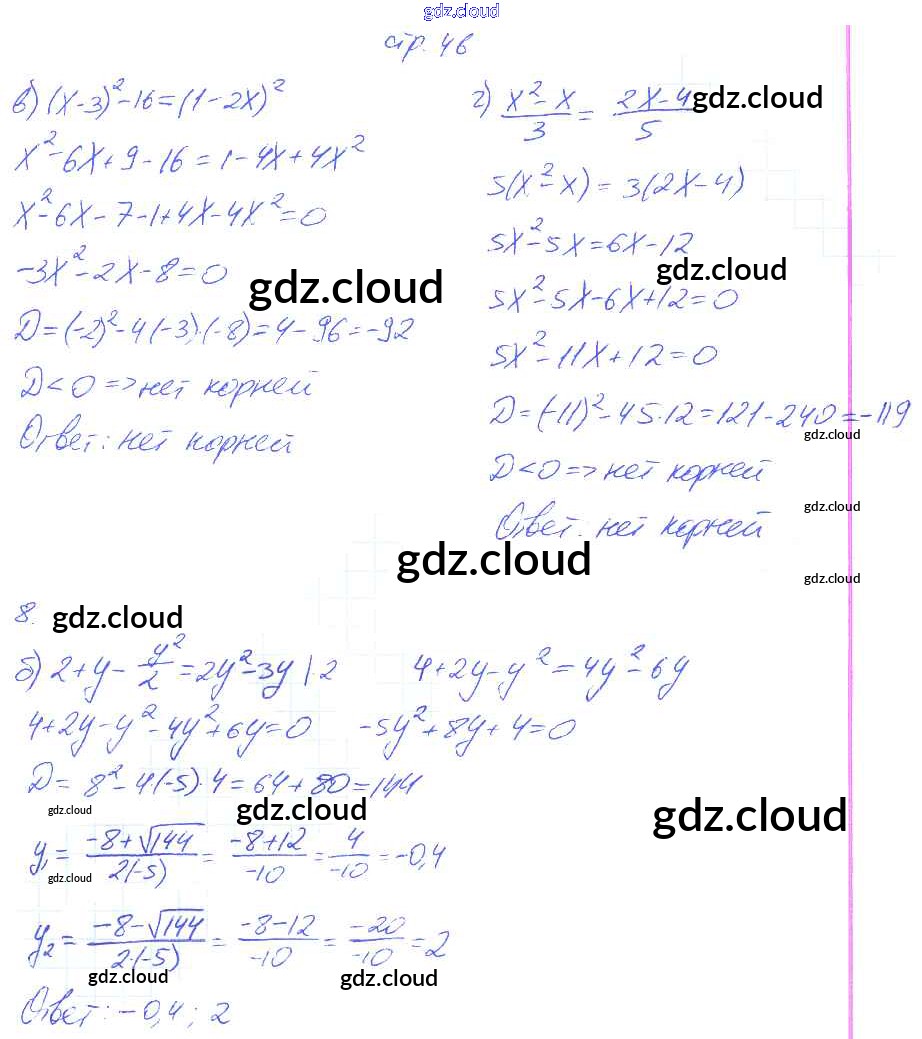 gdz.cloud
стр. 46
в) (x-3)²-16=(1-2x)²
x²-6x+9-16=1-4x+4x²
x²-6x-7-1+4x-4x²=0
-3x²-2x-8=0
gdz.cloud
D=(-2)²-4(-3)·(-8)=4-96=-92
D<0=>нет корней
Ответ: нет корней
г) (x²-x)/3 = (2x-4)/5
gdz.cloud
5(x²-x)=3(2x-4)
5x²-5x=6x-12
gdz.cloud
5x²-5x-6x+12=0
5x²-11x+12=0
D=(-11)²-45·12=121-240=-119
gdz.cloud
D<0=>нет корней
gdz.cloud
Ответ: нет корней
gdz.cloud
gdz.cloud
8.
gdz.cloud
б) 2+y-y²/2=2y²-3y |·2 4+2y-y²=4y²-6y
4+2y-y²-4y²+6y=0 -5y²+8y+4=0
D=8²-4·(-5)·4=64+80=144
gdz.cloud
gdz.cloud
gdz.cloud
y₁=(-8+√144)/(2(-5))=(-8+12)/(-10)=4/(-10)=-0,4
gdz.cloud
y₂=(-8-√144)/(2·(-5))=(-8-12)/(-10)=(-20)/(-10)=2
gdz.cloud
gdz.cloud
Ответ: -0,4; 2